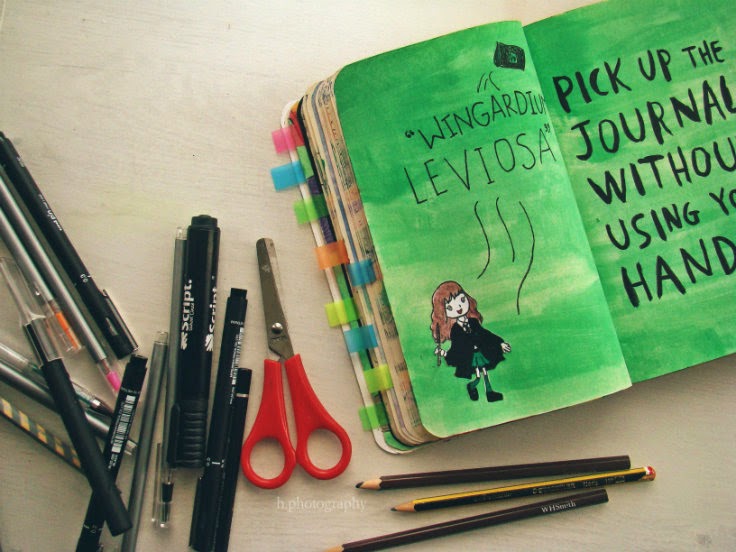 "WINGARDIUM
LEVIOSA"
PICK UP THE
JOURNAL
WITHOUT
USING YO
HAND
Script.
Script.
h.photography
WHSmith